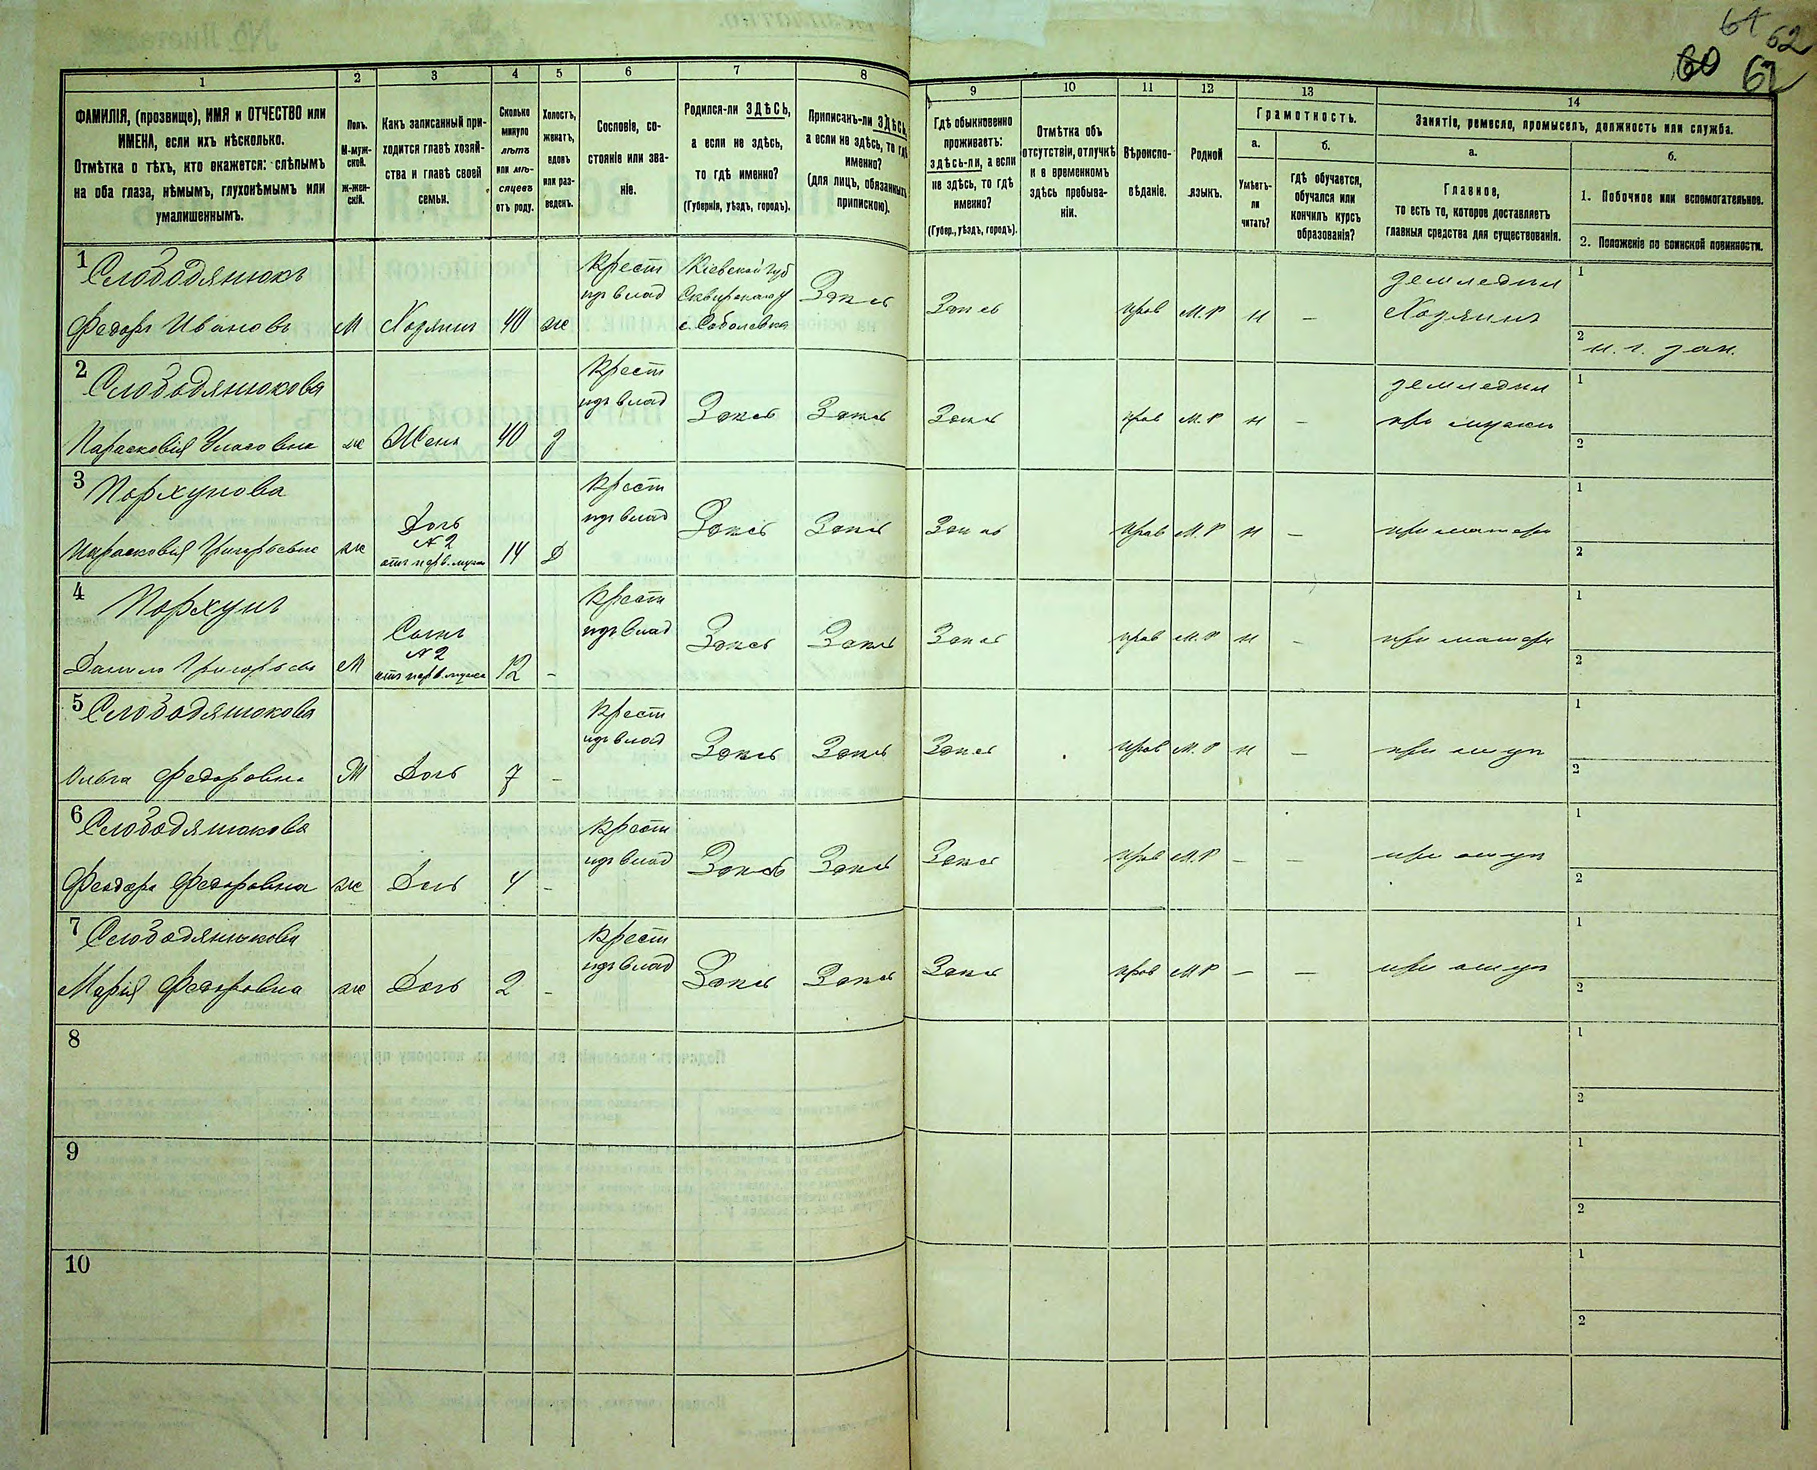 61 62
60 62
1
2
3
4
5
6
7
8
9
10
11
12
13
14
ФАМИЛІЯ, (прозвище), ИМЯ и ОТЧЕСТВО или
ИМЕНА, если ихъ нѣсколько.
Отмѣтка о тѣхъ, кто окажется: слѣпымъ
на оба глаза, нѣмымъ, глухонѣмымъ или
умалишеннымъ.
Полъ.
М-муж-
ской.
Ж-жен-
скій.
Какъ записанный при-
ходится главѣ хозяй-
ства и главѣ своей
семьи.
Сколько
минуло
лѣтъ
или мѣ-
сяцевъ
отъ роду.
Холостъ,
женатъ,
вдовъ
или раз-
веденъ.
Сословіе, со-
стояніе или зва-
ніе.
Родился-ли ЗДѢСЬ,
а если не здѣсь,
то гдѣ именно?
(Губернія, уѣздъ, городъ).
Приписанъ-ли ЗДѢСЬ,
а если не здѣсь, то гдѣ
именно?
(для лицъ, обязанныхъ
припискою).
Гдѣ обыкновенно
проживаетъ:
здѣсь-ли, а если
не здѣсь, то гдѣ
именно?
(Губер., уѣздъ, городъ).
Отмѣтка объ
отсутствіи, отлучкѣ
и о временномъ
здѣсь пребыва-
ніи.
Вѣроиспо-
вѣданіе.
Родной
языкъ.
Грамотность.
а.
Умѣетъ-
ли
читать?
б.
Гдѣ обучается,
обучался или
кончилъ курсъ
образованія?
Занятіе, ремесло, промыселъ, должность или служба.
а.
Главное,
то есть то, которое доставляетъ
главныя средства для существованія.
б.
1. Побочное или вспомогательное.
2. Положеніе по воинской повинности.
1 Слободянюкъ
Федоръ Ивановъ М Хозяинъ 40 ж
Крест
изъ влад
Кіевской губ
Сквирскаго у
с. Соболевка
Здесь Здесь прав М.Р н —
земледел
Хозяинъ
1
2
2 Слободянюкова
Парасковія Уласовна ж Жена 40 з
Крест
изъ влад
Здесь Здесь Здесь прав М.Р н —
земледел
при мужи
1
2
3 Порхунова
Парасковія Григорьевна ж
Дочь
N 2
отъ перв. мужа
14 Д
Крест
изъ влад
Здесь Здесь Здесь прав М.Р н —
при матери
1
2
4 Порхунъ
Данило Григорьевъ М
Сынъ
N 2
отъ перв. мужа
12 –
Крест
изъ влад
Здесь Здесь Здесь прав М.Р н —
при матери
1
2
5 Слободянюкова
Ольга Федоровна М Дочь 7 –
Крест
изъ влад
Здесь Здесь Здесь прав М.Р н —
при отцу
1
2
6 Слободянюкова
Феодора Федоровна ж Дочь 4 –
Крест
изъ влад
Здесь Здесь Здесь прав М.Р — —
при отцу
1
2
7 Слободянюкова
Марія Федоровна ж Дочь 2 –
Крест
изъ влад
Здесь Здесь Здесь прав М.Р — —
при отцу
1
2
8
1
2
9
1
2
10
1
2